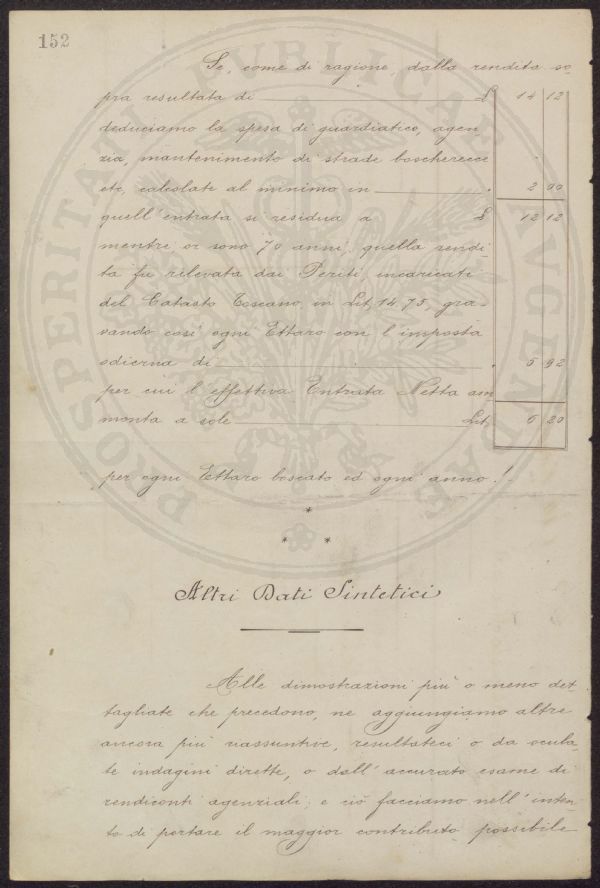 152
Se, come di ragione, dalla rendita so-
pra resultata di £ 14 12
deduciamo la spesa di guardiatico, agen
zia, mantenimento di strade boscherecce
etc, calcolate al minimo in 2 00
quell'entrata si residua a £ 12 12
mentre or sono 70 anni, quella rendi-
ta fu rilevata dai Periti incaricati
del Catasto Toscano in Lit, 14 75, gra-
vando così ogni Ettaro con l'imposta
odierna di 5 92
per cui l'effettiva Entrata Netta am
monta a sole Lit, 6 20
per ogni Ettaro boscato ed ogni anno!
*
* *
Altri Dati Sintetici
Alle dimostrazioni più o meno det-
tagliate che precedono, ne aggiungiamo altre
ancora più riassuntive, resultateci o da ocula-
te indagini dirette, o dall'accurato esame di
rendiconti agenziali: e ciò facciamo nell'inten-
to di portare il maggior contributo possibile
PROSPERITATI PVBLICAE AVGENDAE